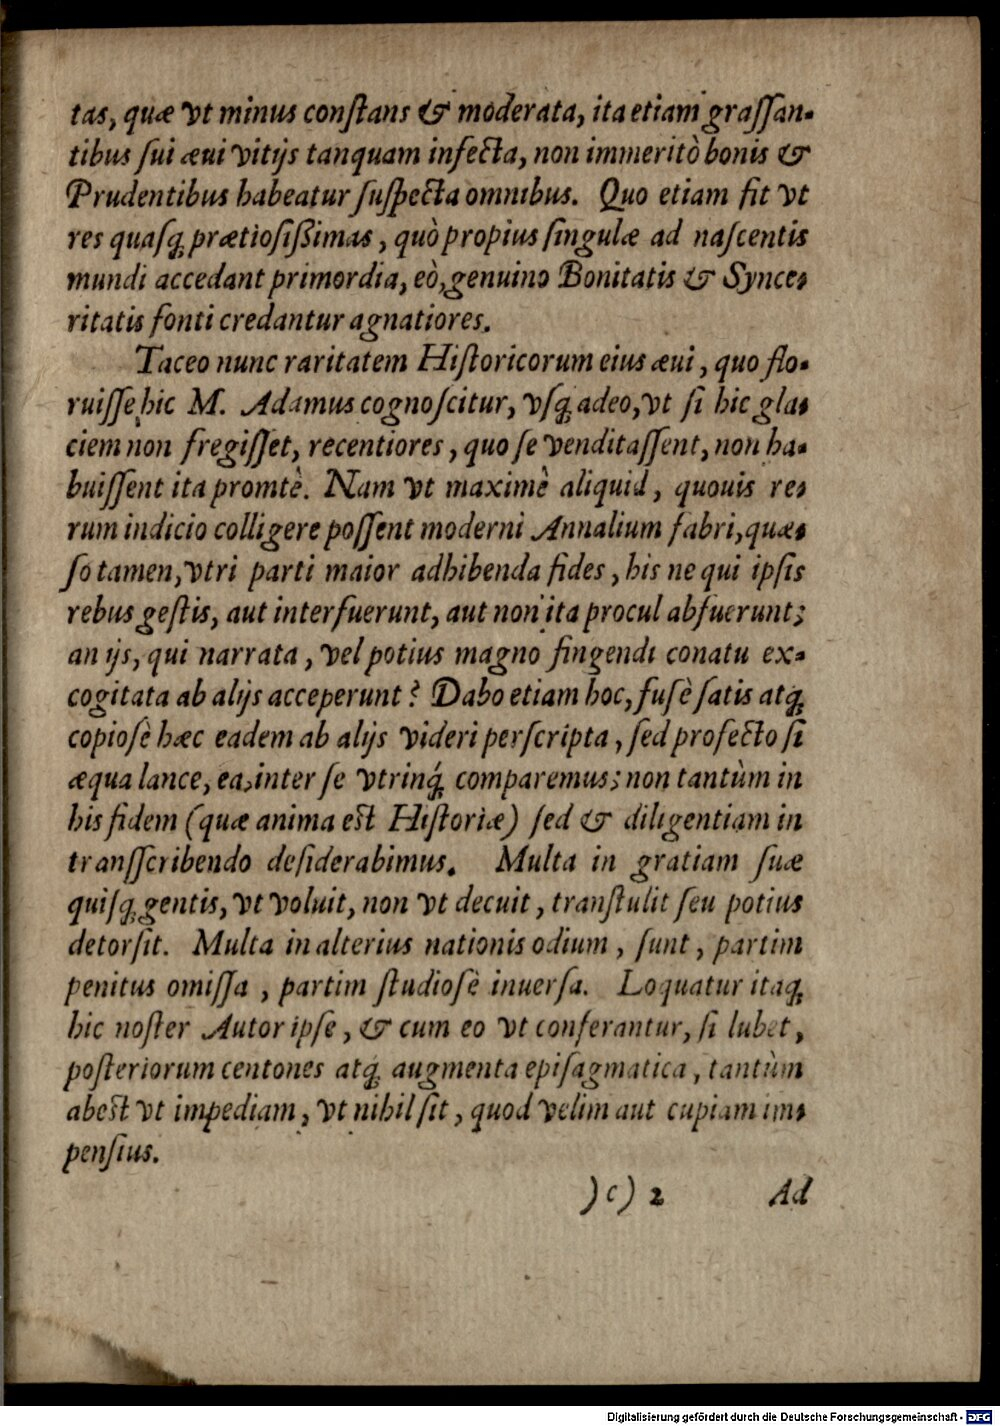 tas, quæ vt minus conſtans & moderata, ita etiam graſſan-
tibus ſui æui vitijs tanquam infecta, non immeritò bonis &
Prudentibus habeatur ſuſpecta omnibus. Quo etiam fit vt
res quaſq́; prætioſißimas, quò propius ſingulæ ad naſcentis
mundi accedant primordia, eò, genuino Bonitatis & Synce-
ritatis fonti credantur agnatiores.
Taceo nunc raritatem Hiſtoricorum eius æui, quo flo-
ruiſſe hic M. Adamus cognoſcitur, vſq; adeo, vt ſi hic gla-
ciem non fregiſſet, recentiores, quo ſe venditaſſent, non ha-
buiſſent ita promtè. Nam vt maximè aliquid, quouis re-
rum indicio colligere poſſent moderni Annalium fabri, quæ-
ſo tamen, vtri parti maior adhibenda fides, his ne qui ipſis
rebus geſtis, aut interfuerunt, aut non ita procul abfuerunt;
an ijs, qui narrata, vel potius magno fingendi conatu ex-
cogitata ab alijs acceperunt? Dabo etiam hoc, fuſè ſatis atq;
copioſè hæc eadem ab alijs videri perſcripta, ſed profecto ſi
æqua lance, ea, inter ſe vtrinq́; comparemus; non tantùm in
his fidem (quæ anima est Hiſtoriæ) ſed & diligentiam in
tranſſcribendo deſiderabimus. Multa in gratiam ſuæ
quiſq; gentis, vt voluit, non vt decuit, tranſtulit ſeu potius
detorſit. Multa in alterius nationis odium, ſunt, partim
penitus omiſſa, partim ſtudioſè inuerſa. Loquatur itaq;
hic noſter Autor ipſe, & cum eo vt conferantur, ſi lubet,
poſteriorum centones atq; augmenta epiſagmatica, tantùm
abest vt impediam, vt nihil ſit, quod velim aut cupiam im-
penſius.
)c) 2 Ad
Digitalisierung gefördert durch die Deutsche Forschungsgemeinschaft - DFG